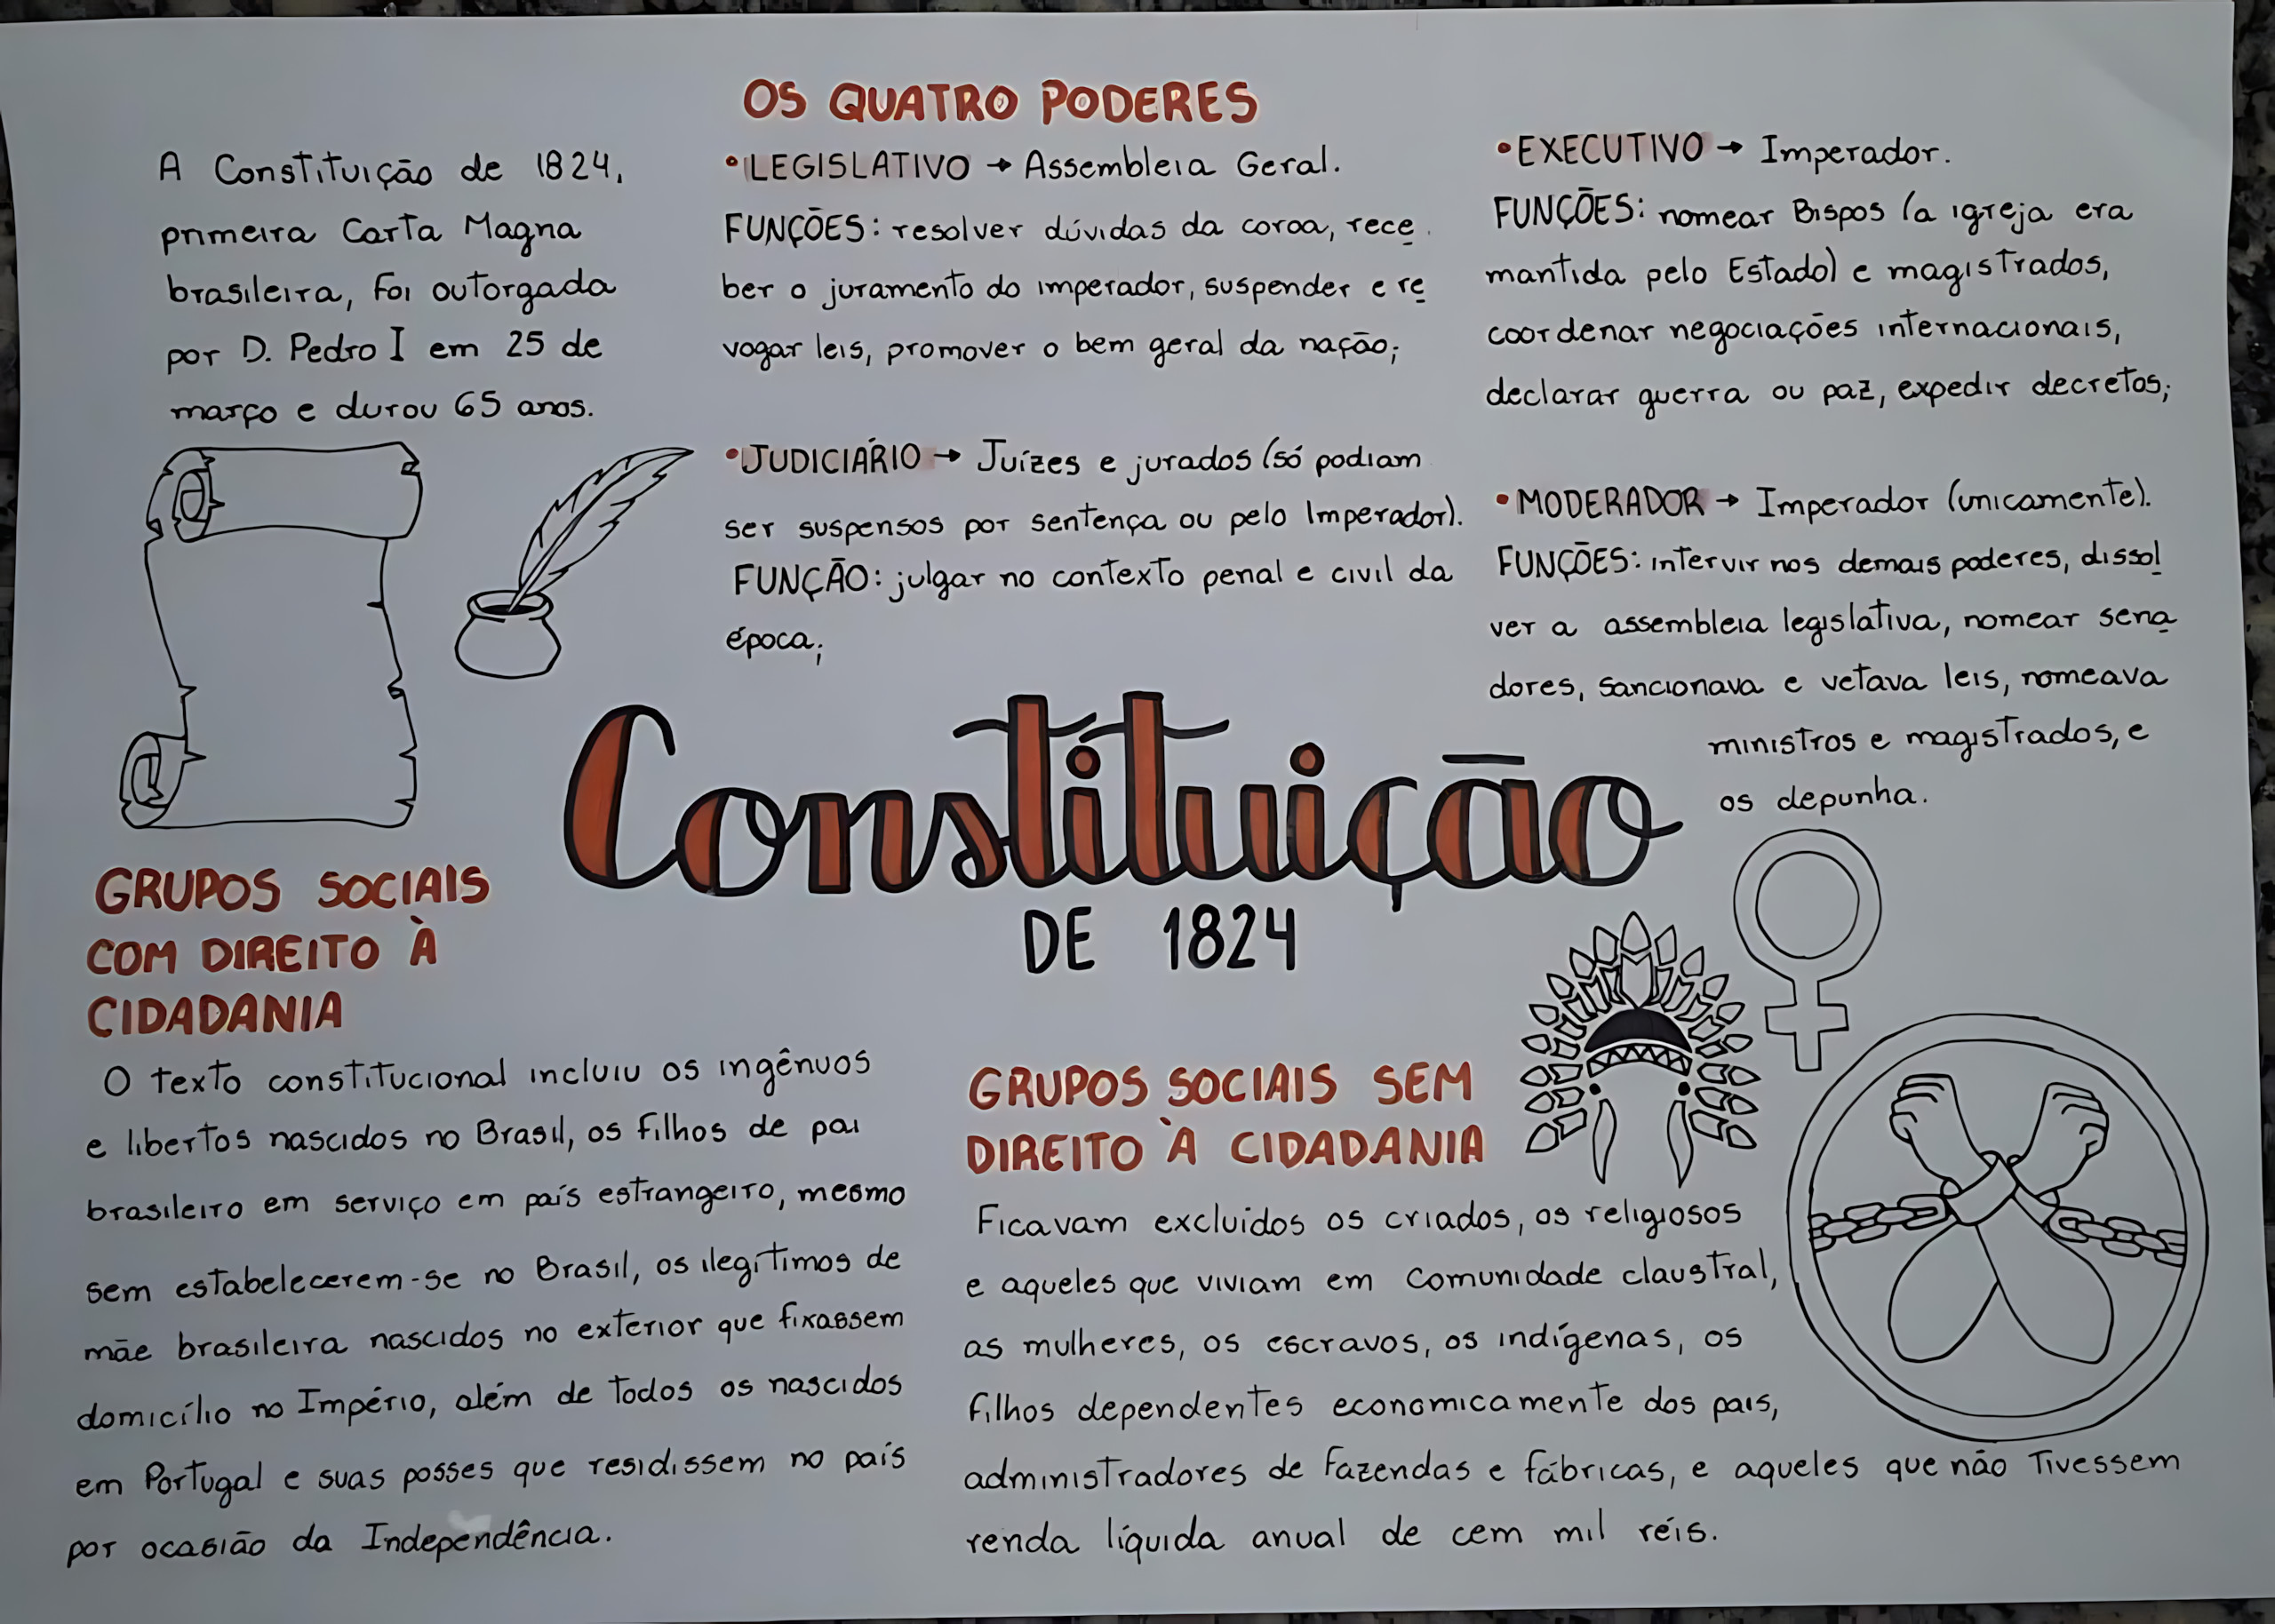 A Constituição de 1824,
primeira Carta Magna
brasileira, foi outorgada
por D. Pedro I em 25 de
março e durou 65 anos.
OS QUATRO PODERES
•LEGISLATIVO → Assembleia Geral.
FUNÇÕES: resolver dúvidas da coroa, rece
ber o juramento do imperador, suspender e re
vogar leis, promover o bem geral da nação;
•JUDICIÁRIO → Juízes e jurados (só podiam
ser suspensos por sentença ou pelo Imperador).
FUNÇÃO: julgar no contexto penal e civil da
época;
•EXECUTIVO → Imperador.
FUNÇÕES: nomear Bispos (a igreja era
mantida pelo Estado) e magistrados,
coordenar negociações internacionais,
declarar guerra ou paz, expedir decretos;
•MODERADOR → Imperador (unicamente).
FUNÇÕES: intervir nos demais poderes, dissol
ver a assembleia legislativa, nomear sena
dores, sancionava e vetava leis, nomeava
ministros e magistrados, e
os depunha.
Constituição
DE 1824
GRUPOS SOCIAIS
COM DIREITO À
CIDADANIA
O texto constitucional incluiu os ingênuos
e libertos nascidos no Brasil, os filhos de pai
brasileiro em serviço em país estrangeiro, mesmo
sem estabelecerem-se no Brasil, os ilegítimos de
mãe brasileira nascidos no exterior que fixassem
domicílio no Império, além de todos os nascidos
em Portugal e suas posses que residissem no país
por ocasião da Independência.
GRUPOS SOCIAIS SEM
DIREITO À CIDADANIA
Ficavam excluidos os criados, os religiosos
e aqueles que viviam em comunidade claustral,
as mulheres, os escravos, os indígenas, os
filhos dependentes economicamente dos pais,
administradores de fazendas e fábricas, e aqueles que não tivessem
renda líquida anual de cem mil réis.